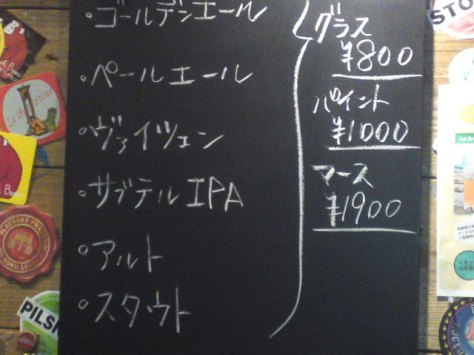 ・ゴールデンエール
・ペールエール
・ヴァイツェン
・サブテルIPA
・アルト
・スタウト
グラス
¥800
パイント
¥1000
マース
¥1900
PILS
STO